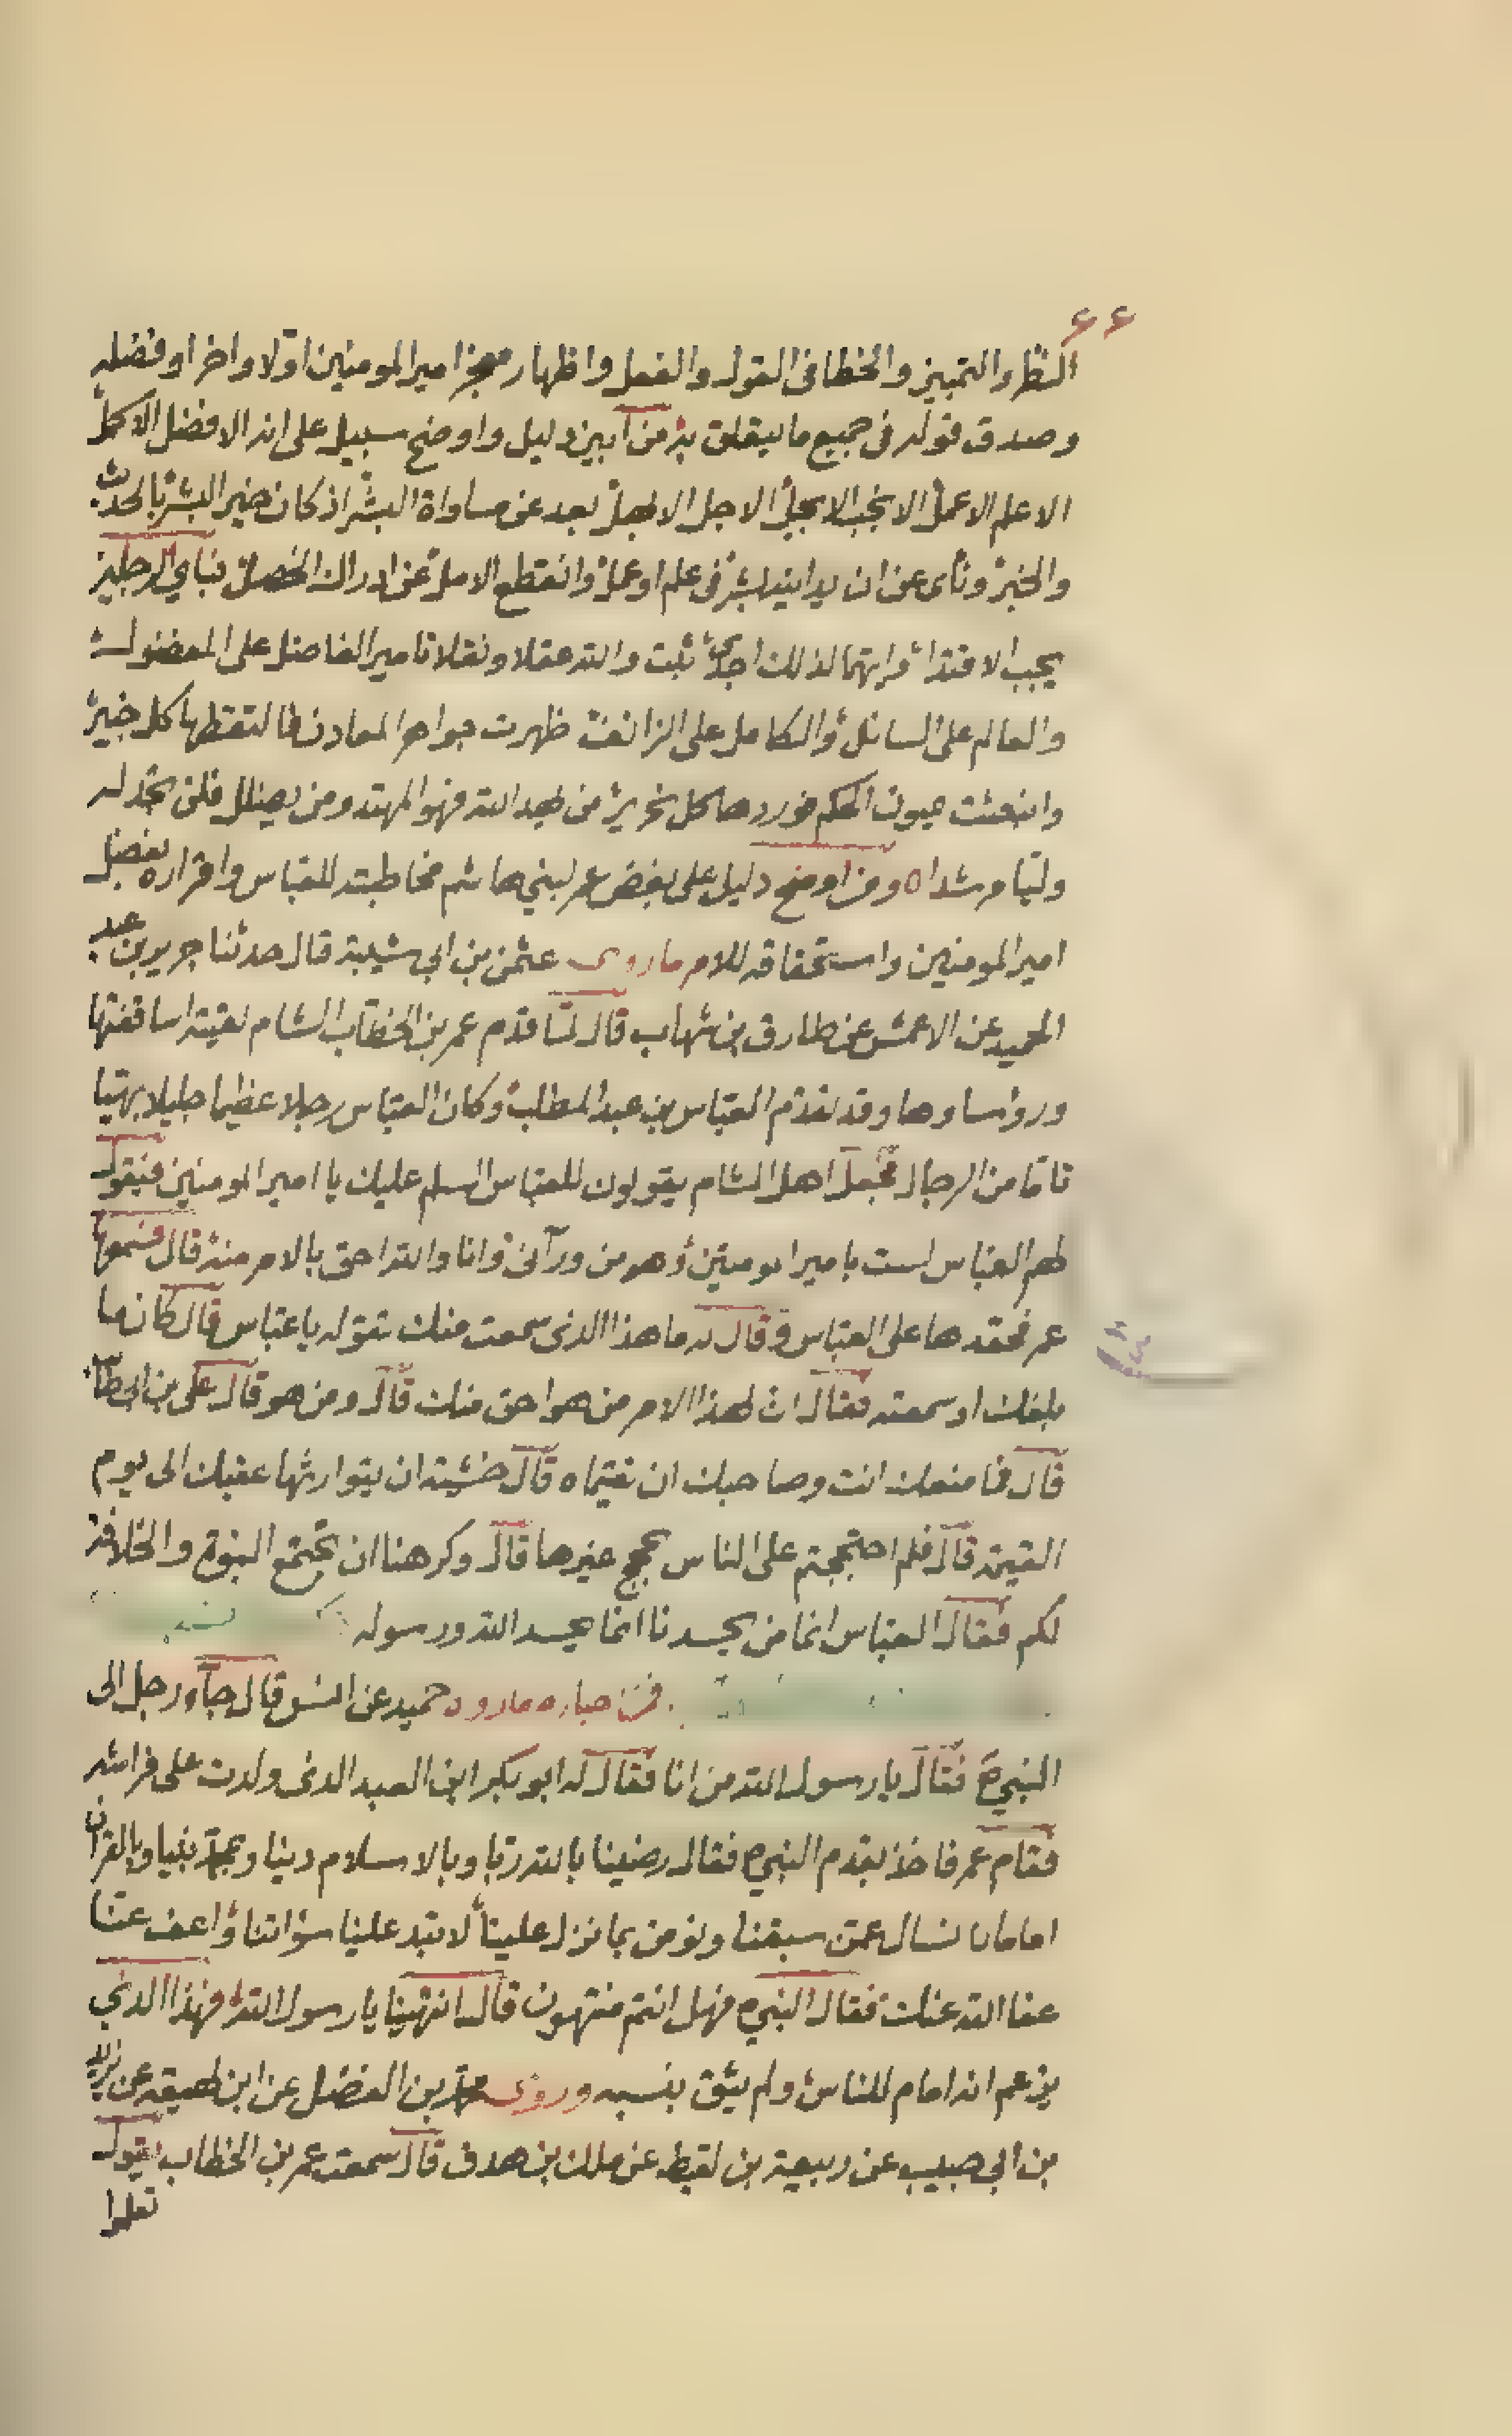 ٦٦
النظر والتمييز والخطا فى القول والفعل واظهار معجز امير المومنين اولا واخرا وفضله
وصدق قوله فى جميع ما يتعلق به من ابين دليل واوضح سبيل على انه الافضل الاكمل
الاعلم الاعمل الانجب الابجل الاجل الابهل بعد عن مساواة البشر اذ كان خير البشر بالحديث
والخبر ونأى عن ان يدانيه بشر فى علم او عمل وانقطع الامل عن ادراك الخصل فباي الرجلين
يجب الاقتداء وايهما لذلك اجدى ثبت والله عقلا ونقلا تامير الفاضل على المفضول
والعالم على السائل والكامل على الزائغ ظهرت جواهر المعادن فالتقطها كل خبير
وانبعثت عيون الحكم فوردها كل نحرير من يهد الله فهو المهتد ومن يضلل فلن تجد له
وليا مرشدا ومن اوضح دليل على بغض عمر لبني هاشم مخاطبته للعباس واقراره بفضل
امير المومنين واستحقاقه للامر ما روى عثمن بن ابي شيبة قال حدثنا جرير بن عبد
الحميد عن الاعمش عن طارق بن شهاب قال لما قدم عمر بن الخطاب الشام لقيته اساقفتها
وروساوها وقد تقدم العباس بن عبد المطلب وكان العباس رجلا عظيما جليلا بهيا
تاما من الرجال فجعل اهل الشام يقولون للعباس السلم عليك يا امير المومنين فيقول
لهم العباس لست بامير المومنين وهو من ورآئى وانا والله احق بالامر منه قال فسمعها
عمر فحقدها على العباس وقال له ما هذا الذى سمعت منك تقوله يا عباس قال كان ما
بلغك او سمعته فقال ان لهذا الامر من هو احق منك قال ومن هو قال على بن ابيطالب
قال فما منعك انت وصاحبك ان تقيماه قال خشيته ان يتوارثها عقبك الى يوم
القيمة قال فلم احتججتم على الناس بحجج غيرها قال وكرهنا ان تجتمع النبوة والخلافة
لكم فقال العباس انما من يحسدنا انما يحسد الله ورسوله
اخباره ما روى حميد عن انس قال جآء رجل الى
النبي ص فقال يا رسول الله من انا فقال له ابو بكر ابن العبد الذى ولدت على فراشه
فقام عمر فاخذ بقدم النبي ص فقال رضينا بالله ربا وبالاسلام دينا وبمحمد نبيا وبالقران
اماما لا نسال عمن سبقنا ونومن بما نزل علينا لا تبد علينا سؤاتنا واعف عنا
عفا الله عنك فقال النبي ص فهل انتم منتهون قال انتهينا يا رسول الله فهذا الذي
يزعم انه امام للناس ولم يثق بنسبه وروى محمد بن الفضل عن ابن لهيعه عن يزيد
بن ابي حبيب عن ربيعة بن لقيط عن ملك بن هدف قال سمعت عمر بن الخطاب يقول
تعلموا